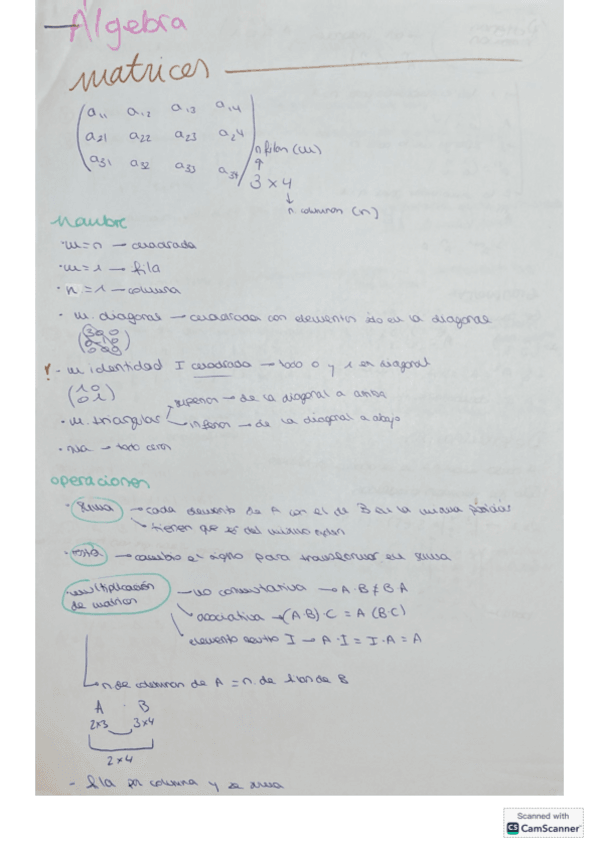 — Álgebra
matrices
a11 a12 a13 a14
a21 a22 a23 a24
a31 a32 a33 a34
n filas (m)
↑
3 x 4
↓
n columnas (n)
nombre
· m = n → cuadrada
· m = 1 → fila
· n = 1 → columna
· m. diagonal → cuadrada con elementos en la diagonal
! · m. identidad I cuadrada → todo 0 y 1 en diagonal
(1 0
0 1)
· m. triangular superior → de la diagonal a arriba
inferior → de la diagonal a abajo
→ todo ceros
operaciones
· suma → cada elemento de A con el de B en la misma posición
tienen que ser del mismo orden
· resta → cambio el signo para transformar en suma
· multiplicación de matrices → no conmutativa → A·B ≠ B·A
asociativa → (A·B)·C = A (B·C)
elemento neutro I → A·I = I·A = A
n. de columnas de A = n. de filas de B
A · B
2x3 3x4
2x4
- fila por columna y se suma
Scanned with
CS CamScanner